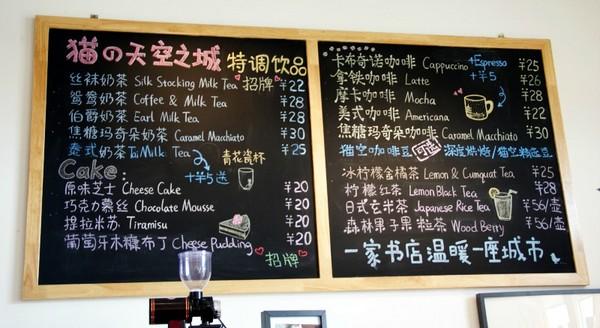 猫の天空之城 特调饮品
丝袜奶茶 Silk Stocking Milk Tea 招牌 ¥22
鸳鸯奶茶 Coffee & Milk Tea ¥28
伯爵奶茶 Earl Milk Tea ¥28
焦糖玛奇朵奶茶 Caramel Macchiato ¥30
泰式奶茶 Tai Milk Tea ¥25
青花瓷杯
+¥5送
Cake:
原味芝士 Cheese Cake ¥20
巧克力慕丝 Chocolate Mousse ¥20
提拉米苏 Tiramisu ¥20
葡萄牙木糠布丁 Cheese Pudding ¥20
招牌
卡布奇诺咖啡 Cappuccino ¥25
+Espresso
+¥5
拿铁咖啡 Latte ¥26
摩卡咖啡 Mocha ¥28
美式咖啡 Americana ¥22
焦糖玛奇朵咖啡 Caramel Macchiato ¥30
猫空咖啡豆 可选 深度烘焙/猫空精选豆
冰柠檬金橘茶 Lemon & Cumquat Tea ¥25
柠檬红茶 Lemon Black Tea ¥28
日式玄米茶 Japanese Rice Tea ¥56/壶
森林果子果粒茶 Wood Berry ¥56/壶
一家书店温暖一座城市